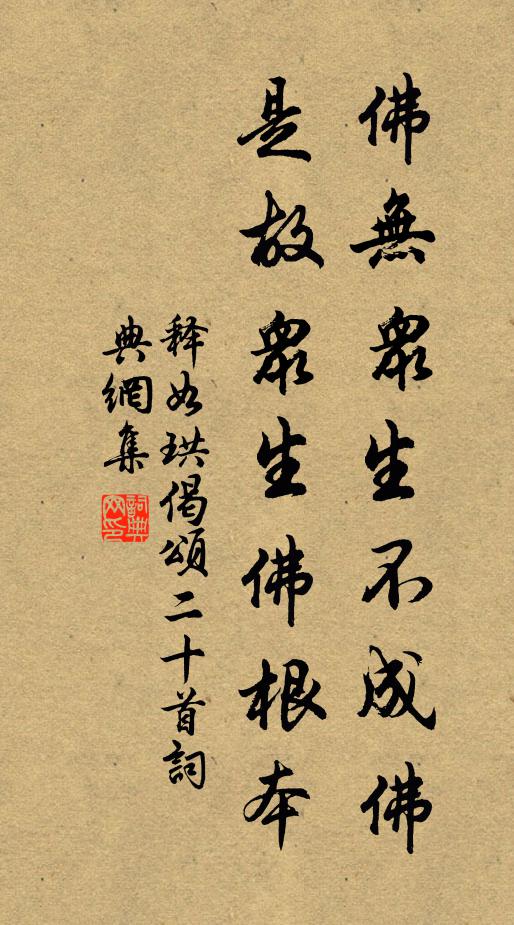 佛無眾生不成佛
是故眾生佛根本
释如珙偈頌二十首詞
典網集
詞典網印